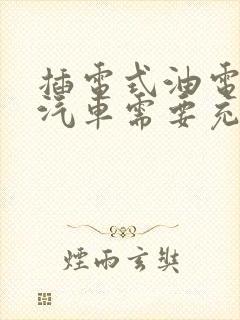 插電式油電
汽車需要充
煙雨玄奘